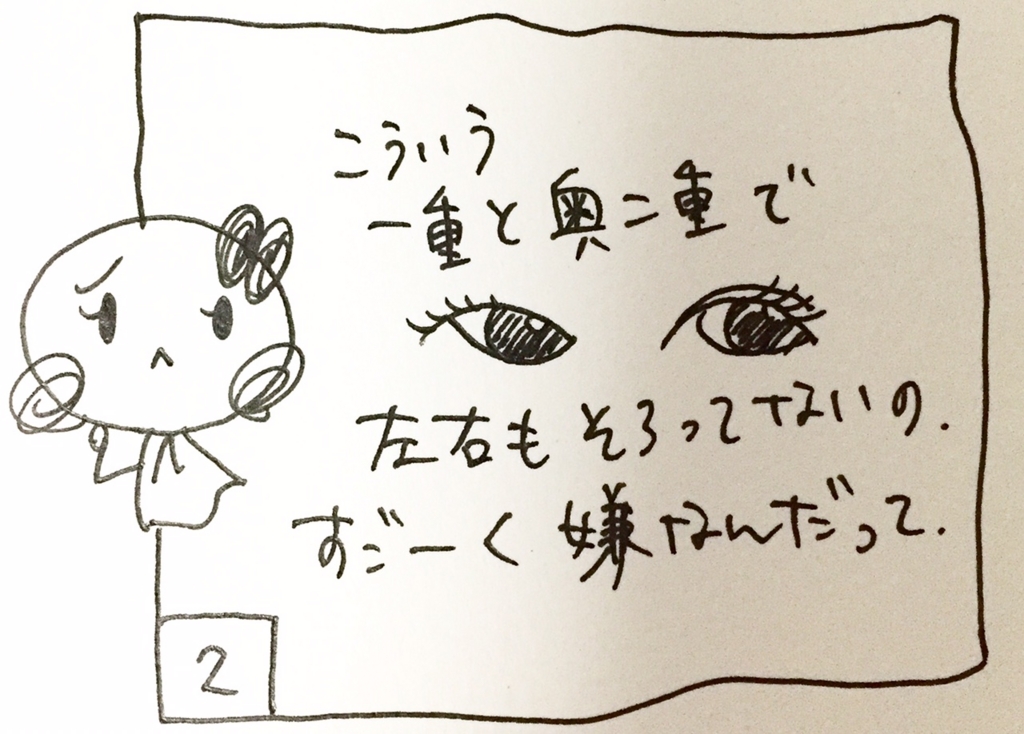 こういう
一重と奥二重で
左右もそろってないの.
すごーく嫌なんだって.
2